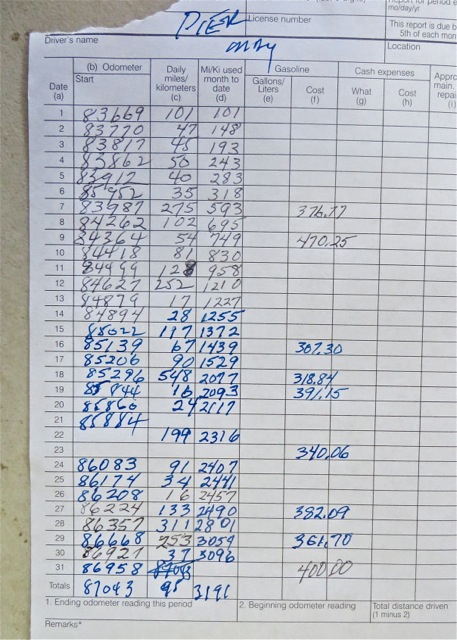 mo/day/yr
PIER
License number
This report is due b
5th of each mon
Driver's name
may
Location
(b) Odometer Daily Mi/Ki used Gasoline Cash expenses Appro
Start miles/ month to Gallons/ Cost What Cost main.
Date kilometers date Liters (f) (g) (h) repai
(a) (c) (d) (e) (i)
1 83669 101 101
2 83770 47 148
3 83817 45 193
4 83862 50 243
5 83912 40 283
6 35 318
7 83987 275 593 376.77
8 84262 102 695
9 84364 54 749 470.25
10 84418 81 830
11 84499 128 958
12 84627 252 1210
13 84879 17 1227
14 84894 28 1255
15 117 1372
16 85139 67 1439 307.30
17 85206 90 1529
18 85296 548 2077 318.84
19 85844 16 2093 391.15
20 85860 24 2117
21 85884
22 199 2316
23 340.06
24 86083 91 2407
25 86174 34 2441
26 86208 16 2457
27 86224 133 2490 382.09
28 86357 311 2801
29 86668 253 3054 361.70
30 86921 37 3096
31 86958 400.00
Totals 87043 95 3191
1. Ending odometer reading this period 2. Beginning odometer reading Total distance driven
(1 minus 2)
Remarks*